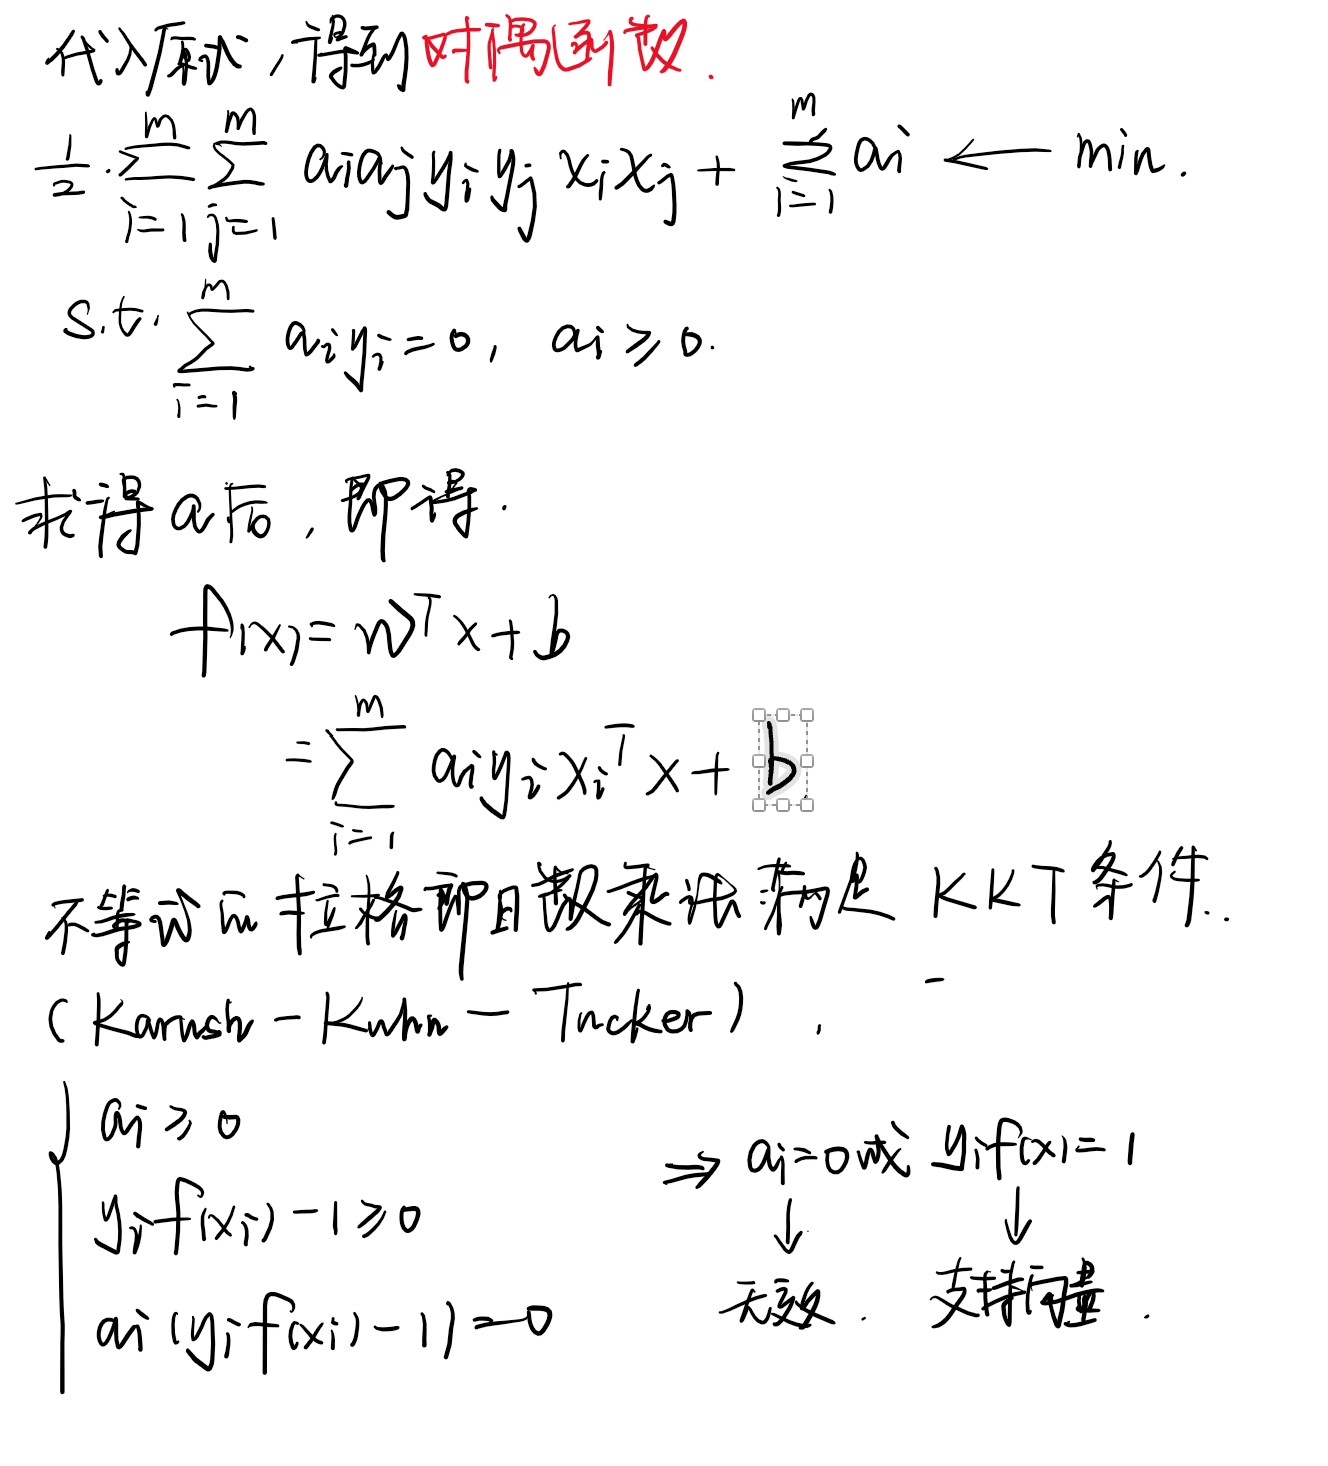 代入原式，得到对偶函数.
1/2·∑_{i=1}^{m}∑_{j=1}^{m} aᵢaⱼyᵢyⱼxᵢxⱼ + ∑_{i=1}^{m} aᵢ ← min.
s.t. ∑_{i=1}^{m} aᵢyᵢ=0, aᵢ≥0.
求得a后，即得.
f(x)=wᵀx+b
=∑_{i=1}^{m} aᵢyᵢxᵢᵀx+b
不等式的拉格朗日数乘法满足KKT条件..
(Karush-Kuhn-Tucker)
aᵢ≥0
yᵢf(xᵢ)-1≥0
aᵢ(yᵢf(xᵢ)-1)=0
⇒ aᵢ=0或 yᵢf(x)=1
↓ ↓
无效. 支持向量.